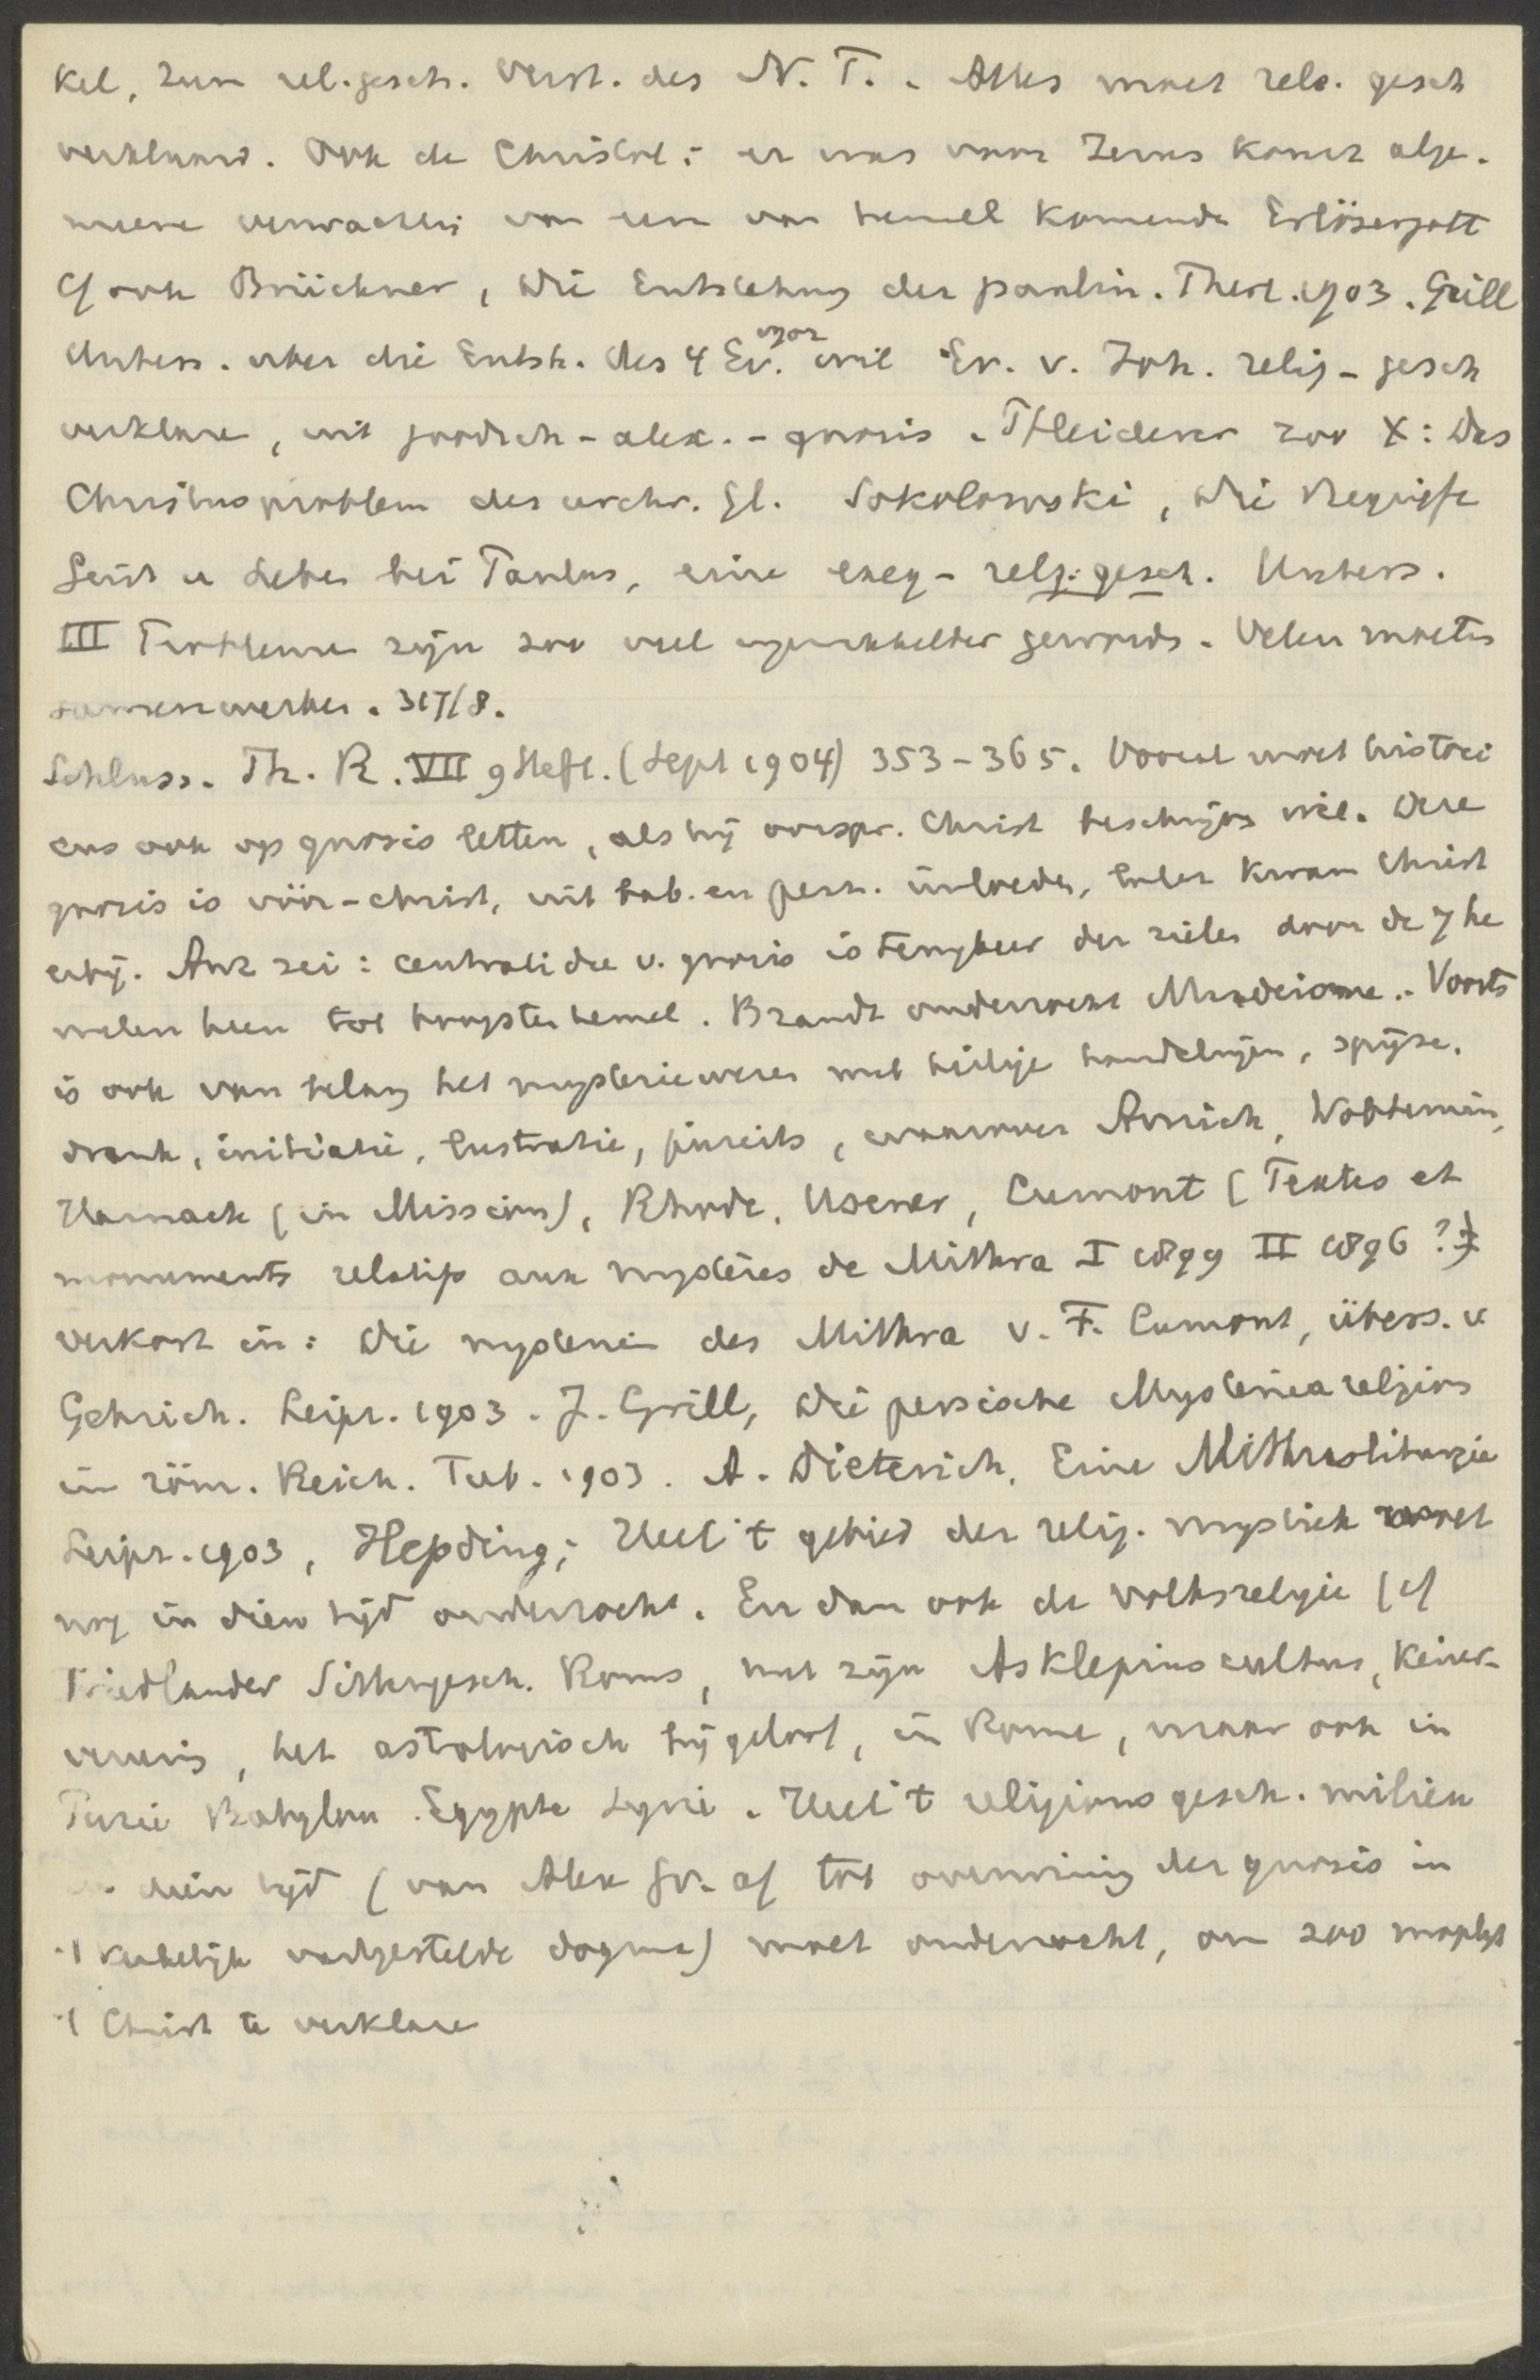 kel, Zum rel.gesch. Verst. des N. T. . Alles moet rels. gesch
verklaard. Ook de Christol: er was voor Jezus komst alge-
meene verwachting van een van hemel komende Erlösergott
cf ook Brückner, Die Entstehung der paulin. Christ. 1903. Grill
Unters. über die Entst. des 4 Ev. wil Ev. v. Joh. relig-gesch
verklare, uit joodsch-alex.-gnosis. Pfleiderer zoo X: Das
Christusproblem des urchr. Gl. Sokolowski, Die Begriffe
Geist u Leben bei Paulus, eine exeg-relg:gesch. Unters.
III Probleme zijn zoo veel ingewikkelder geworden. Velen moeten
samenwerken. 317/8.
Schluss. Th. R. VII 9 Heft. (Sept 1904) 353-365. Vooral moet histori
cus ook op gnosis letten, als hij oorspr. Christ beschrijven wil. Deze
gnosis is vóór-christ, uit bab. en perz. invloeden, later kwam Christ
erbij. Anz zei: centrali dee v. gnosis is terugkeer der zielen door de 7 he
melen heen tot hoogsten hemel. Brandt onderzocht Mandeisme. Voorts
is ook van belang het mysteriewezen met heilige handelingen, spijze,
drank, initiatie, lustratie, waarover Anrich, Wobbermin,
Harnack (in Mission), Rhode, Usener, Cumont (Textes et
monuments relatifs aux mystères de Mithra I 1899 II 1896 ?)
verkort in: Die mysterien des Mithra v. F. Cumont, übers. v
Gehrich. Leipz. 1903. J. Grill, Die persische Mysterienreligion
in röm. Reich. Tub. 1903. A. Dieterich, Eine Mithrasliturgie
Leipz. 1903, Hepding; Heel 't gebied der relig. mystiek moet
nog in dien tijd onderzocht. En dan ook de volksreligie (cf
Friedlander Sittengesch. Roms, met zijn Asklepius cultus, Keizer-
vereering, het astrologisch bijgeloof, in Rome, maar ook in
Perzie Babylon Egypte Syrie. Heel 't religions gesch. milieu
dien tijd (van Alex Gr. af tot overwinning der gnosis in
't kerkelijk vastgestelde dogma) moet onderzocht, om zoo mogelijk
't Christ te verklare